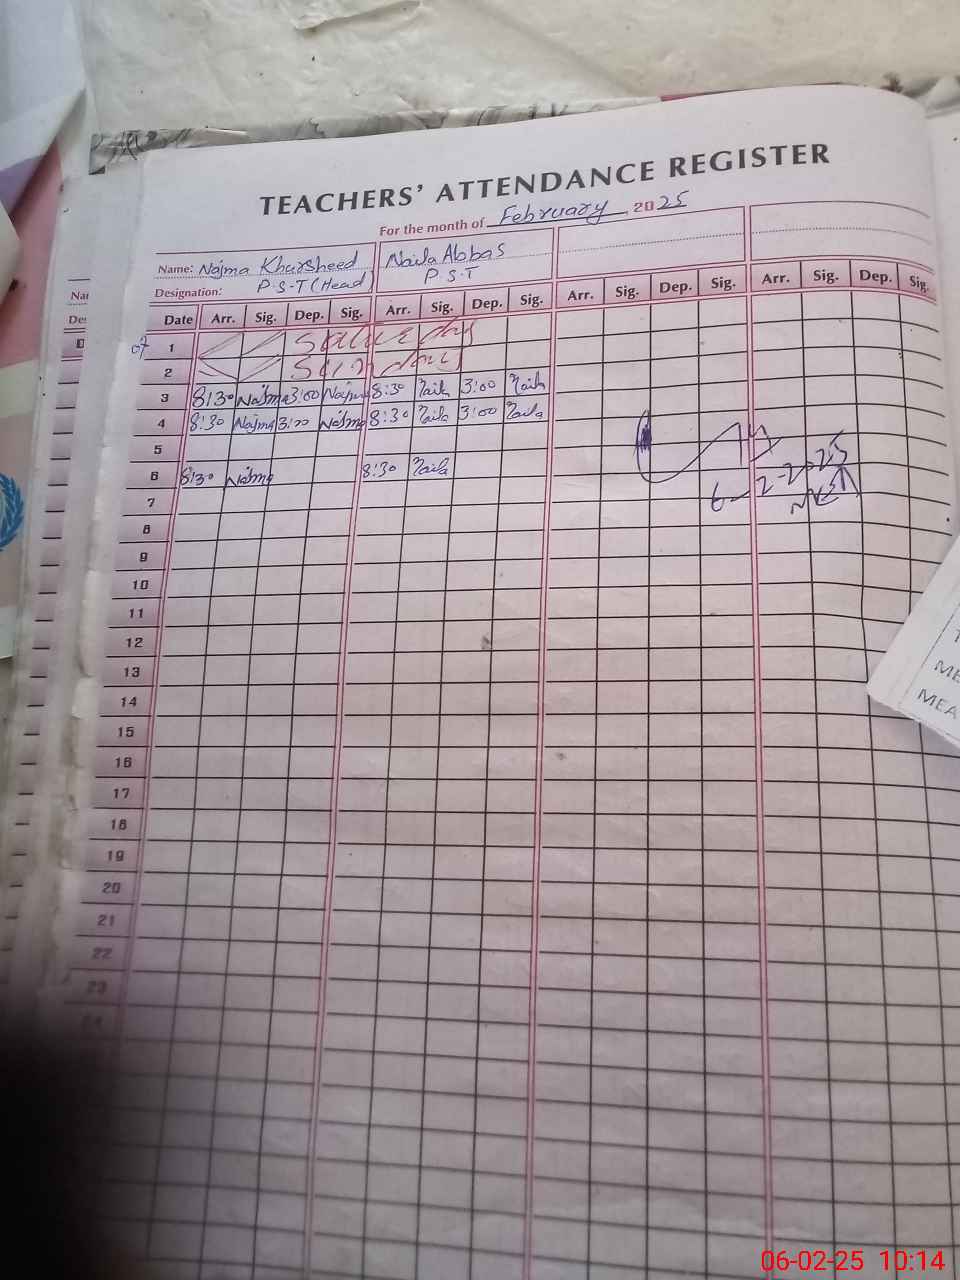 TEACHERS' ATTENDANCE REGISTER
For the month of February 2025
Name: Najma Khursheed Naila Abbas
Designation: P.S.T (Head) P.S.T
Date Arr. Sig. Dep. Sig. Arr. Sig. Dep. Sig. Arr. Sig. Dep. Sig. Arr. Sig. Dep. Sig.
1 Saturday
2 Sunday
3 8:30 Najma 3:00 Najma 8:30 Naila 3:00 Naila
4 8:30 Najma 3:00 Najma 8:30 Naila 3:00 Naila
5
6 8:30 Najma 8:30 Naila
6-2-2025
7
8
9
10
11
12
13
14
15
16
17
18
19
20
21
22
23
24
MEA
06-02-25 10:14